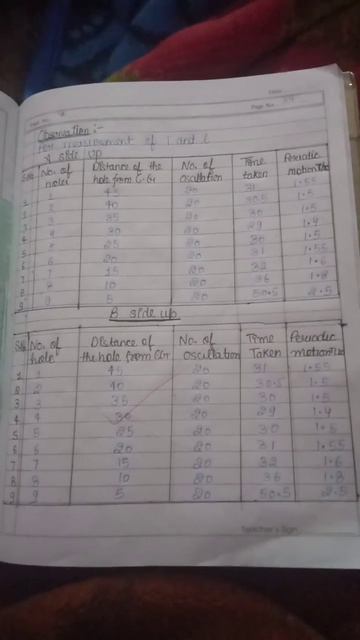 Date
Page No.
Observation :-
For measurement of T and L
A side up
S.No. No. of holes Distance of the hole from C.Gr No. of oscillation Time taken Periodic motion Time
1 1 45 20 31 1.55
2 2 40 20 30.5 1.5
3 3 35 20 30 1.5
4 4 30 20 29 1.4
5 5 25 20 30 1.5
6 6 20 20 31 1.55
7 7 15 20 32 1.6
8 8 10 20 36 1.8
9 9 5 20 50.5 2.5
B side up
S.No. No. of hole Distance of the hole from C.Gr No. of oscullation Time Taken Periodic motion Time
1 1 45 20 31 1.55
2 2 40 20 30.5 1.5
3 3 35 20 30 1.5
4 4 30 20 29 1.4
5 5 25 20 30 1.5
6 6 20 20 31 1.55
7 7 15 20 32 1.6
8 8 10 20 36 1.8
9 9 5 20 50.5 2.5
Teacher's Sign